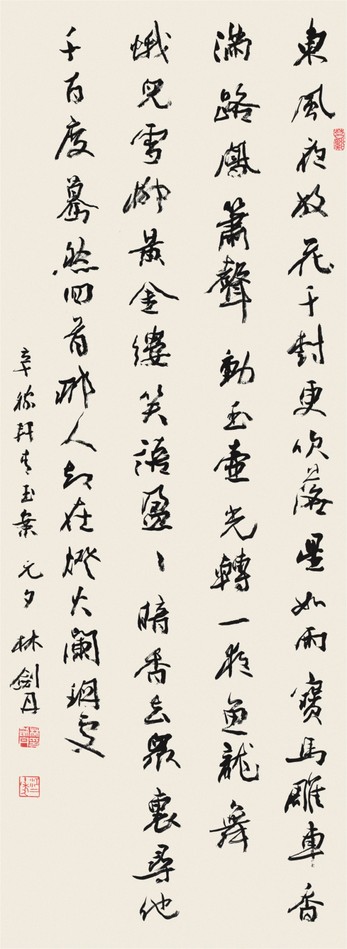 東風夜放花千樹更吹落星如雨寶馬雕車香
滿路鳳簫聲動玉壺光轉一夜魚龍舞
蛾兒雪柳黃金縷笑語盈〻暗香去眾裏尋他
千百度驀然回首那人卻在燈火闌珊處
辛稼軒青玉案 元夕 林劍丹